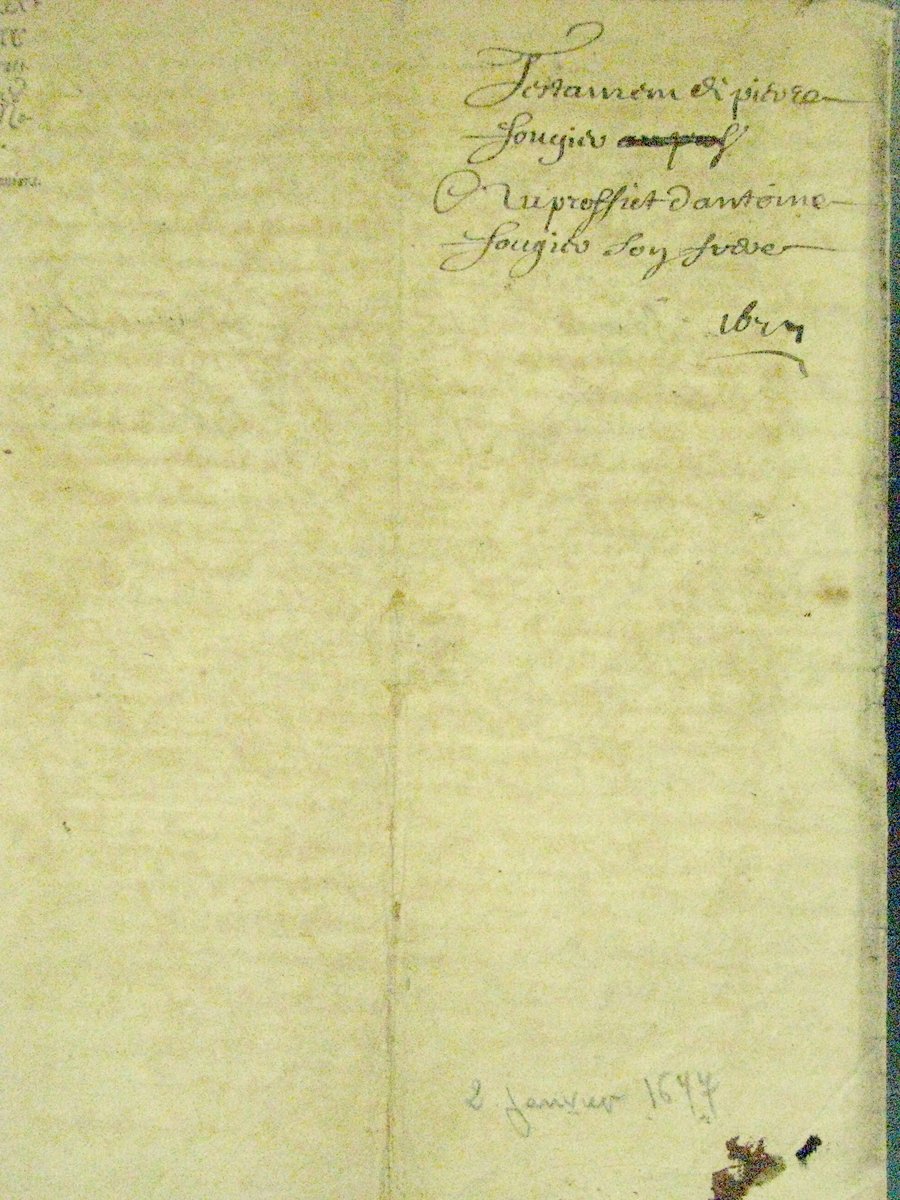 Testament de pierre
fougier
Au proffiet d'antoine
fougier son frere
1677
2 janvier 1677